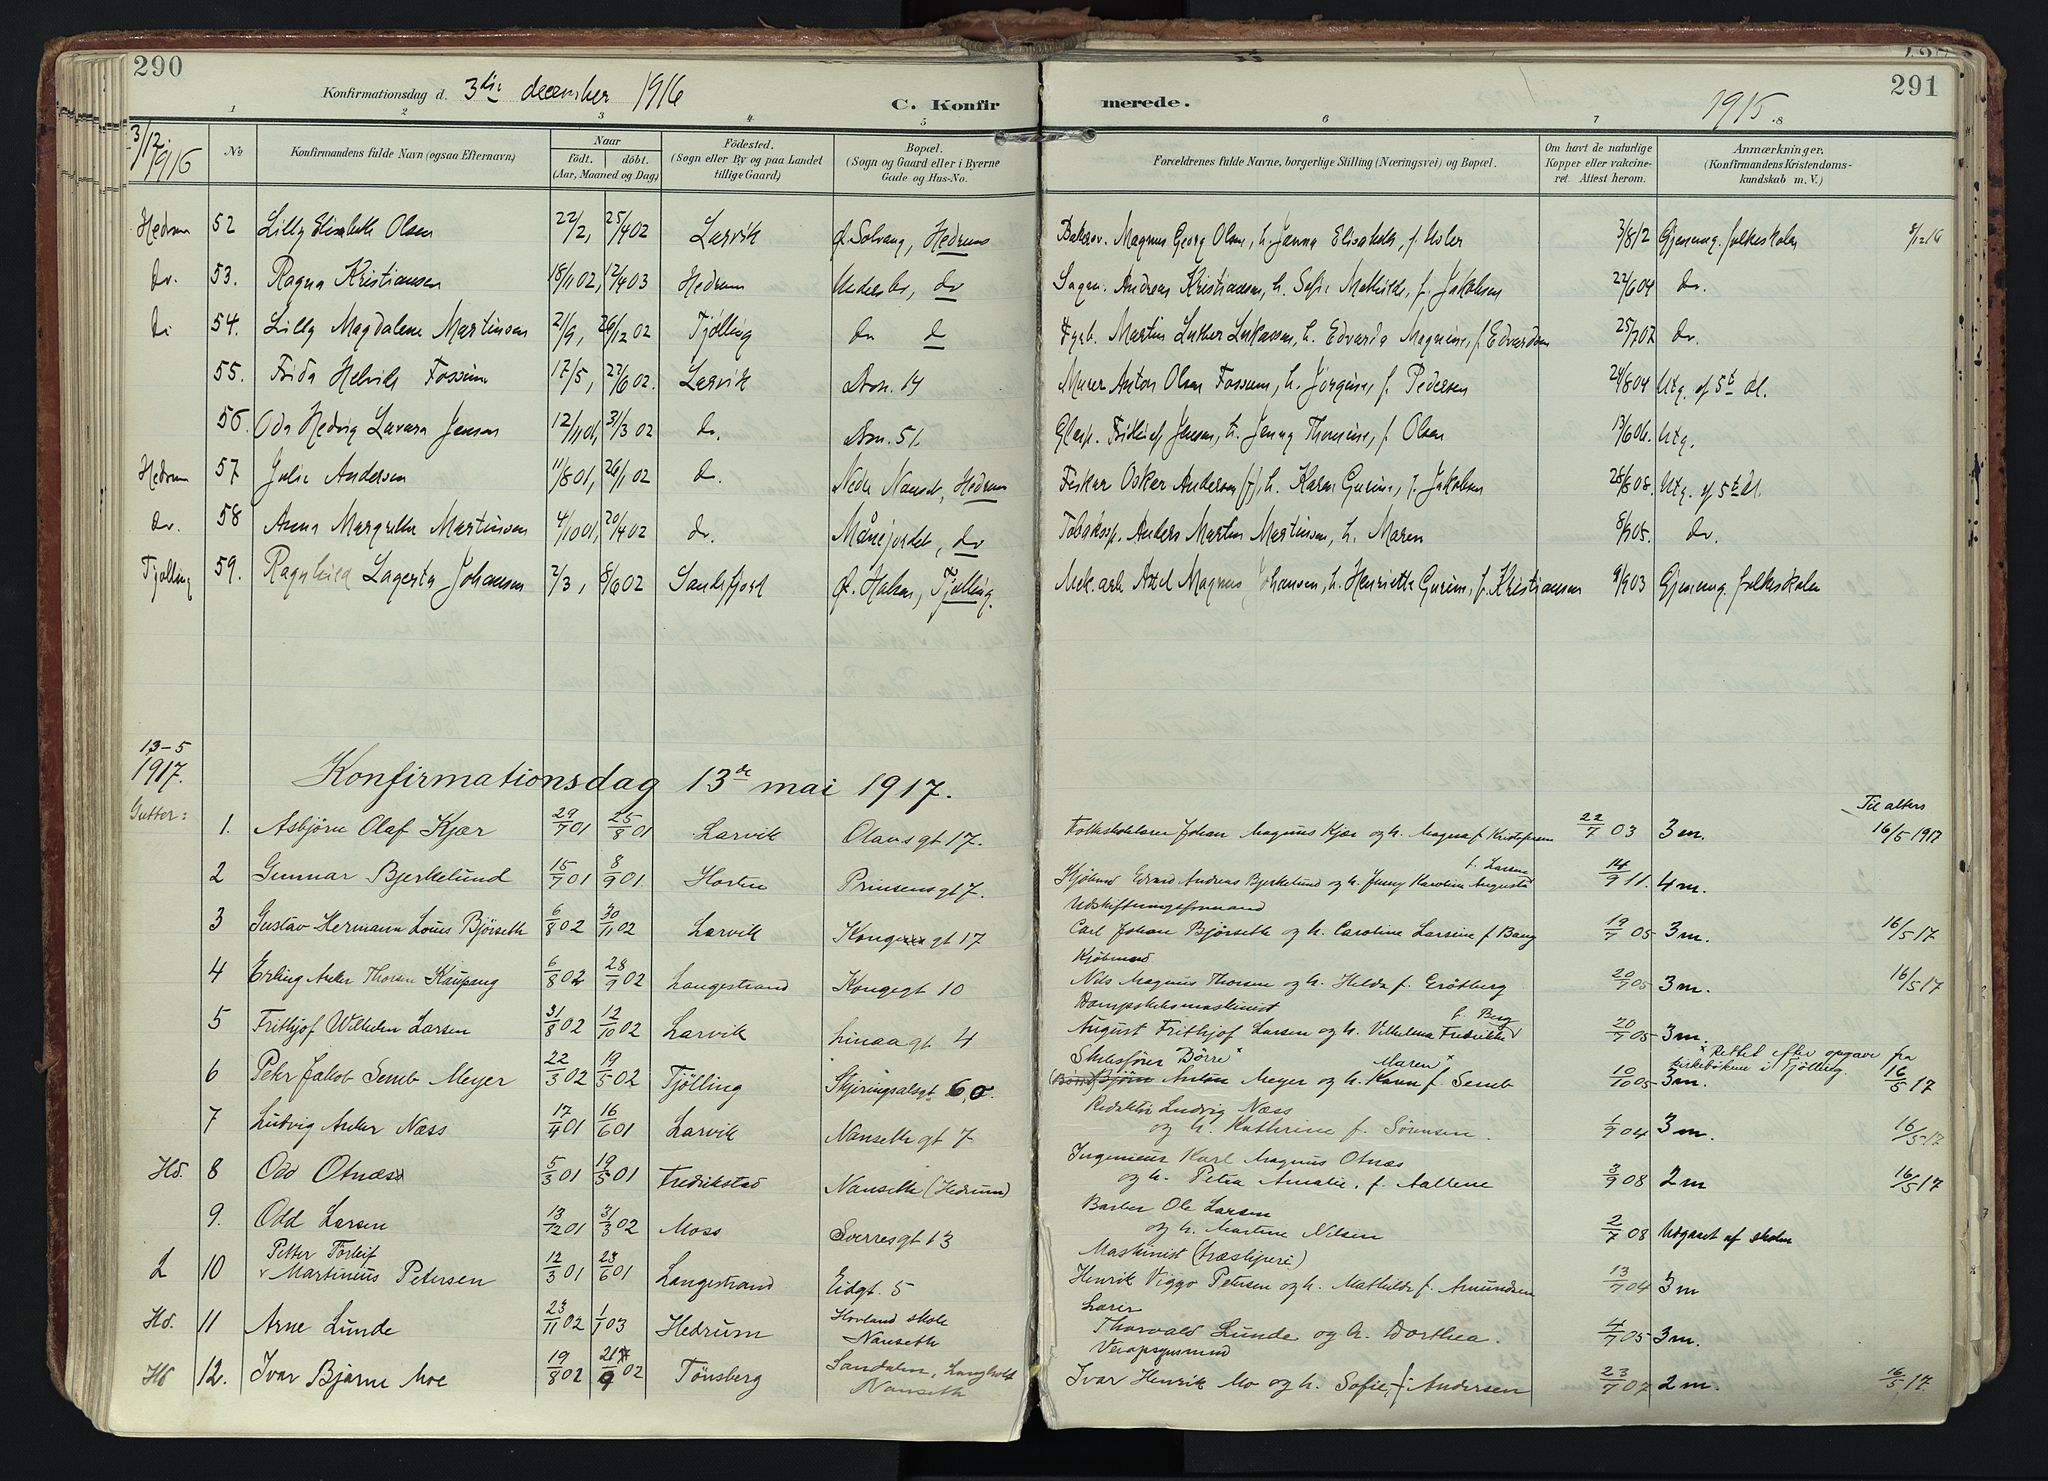 290
Konfirmationsdag d. 3die december 1916
C. Konfir
merede.
1915
291
1 2 3 4 5 6 7 8
3/12 1916
No
Konfirmandens fulde Navn (ogsaa Efternavn)
Naar
født. døbt.
(Aar, Maaned og Dag)
Fødested.
(Sogn eller By og paa Landet
tillige Gaard)
Bopæl.
(Sogn og Gaard eller i Byerne
Gade og Hus-No.
Forældrenes fulde Navne, borgerlige Stilling (Næringsvei) og Bopæl.
Om havt de naturlige
Kopper eller vakcine-
ret. Attest herom.
Anmærkninger.
(Konfirmandens Kristendoms-
kundskab m. V.)
Hedrum 52 Lilly Elisabeth Olsen 22/2, 25/4 02 Larvik Ø. Solvang, Hedrum Magnus Georg Olsen, h. Janna Elisabeth, f. 3/8 12 Gjennemg. folkeskolen 8/12 16
do. 53. Ragna Kristiansen 18/11 02, 12/4 03 Hedrum do Andreas Kristiansen, h. Sofie Mathilde, f. Jakobsen 22/6 04 do.
do 54. Lilly Magdalene Martinsen 21/9, 26/12 02 Tjølling do do Fyrb. Martin Luther h. Edvarda Magnine, f. Edvardsen 25/7 02 do.
55. Frida Helvik Fossum 17/5, 22/6 02. Larvik 14 Murer Anton Olsen Fossum, h. Jørgine, f. Pedersen 24/8 04 Utg. af 5te kl.
56. Oda Hedvig Lavara Jensen 12/11 01, 31/3 02 do. 51. Fridtjof Jensen, h. Jenny Thomine, f. Olsen 13/6 06. Utg.
Hedrum 57 Julie Andersen 11/8 01, 26/1 02 do. Nedre Nanset, Hedrum Fisker Oskar Andersen, h. Karen Gurine, f. Jakobsen 28/8 08. Utg. af 5te kl.
do. 58 Anna Margrethe Martinsen 4/10 01, 20/4 02 do. Månejordet, do Tobaksp. Anders Martin Martinsen, h. Maren 8/7 05. do.
Tjølling 59. Ragnhild Lagerta Johansen 2/3, 8/6 02 Sandefjord Ø. Halsen, Tjølling. Mek. arb Axel Magnus Johansen, h. Henriette Gurine, f. Kristiansen 9/9 03 Gjennemg. folkeskolen
13-5
1917. Konfirmationsdag 13de mai 1917.
Gutter: Til alters
1. Asbjørn Olaf Kjær 29/7 01 25/8 01 Larvik Olavsgt 17. Folkeskolelærer Johan Magnus Kjær og h. Magna f. Kristofersen 22/7 03 3 m. 16/5 1917
f. Larsen
2 Gunnar Bjerkelund 15/7 01 8/9 01 Horten Prinsensgt 7. Kjøbmd Edvard Andreas Bjerkelund og h. Jenny Karoline Augusta 14/9 11. 4 m.
Udskiftningsformand
3 Gustav Hermann Louis Bjørseth 6/8 02 30/11 02 Larvik Kongegt 17 Carl Johan Bjørseth og h. Caroline Larsine f. Bang 19/7 05 3 m. 16/5 17
Kjøbmand
4 Erling Anker Thorsen Kaupang 6/8 02 28/9 02 Langestrand Kongegt 10 Nils Magnus Thorsen og h. Hilda f. Grøtberg 20/9 05 3 m. 16/5 17
Dampskibsmaskinist f. Berg
5 Frithjof Wilhelm Larsen 31/8 02 12/10 02 Larvik Linaagt 4 August Frithjof Larsen og h. Vilhelmine Fredrikke 20/7 05 3 m.
Skibsfører Børre x Maren x x Rettet efter opgave fra
kirkebökene i Tjølling.
6 Peter Jakob Semb Meyer 22/3 02 19/5 02 Tjölling Skiringsalsgt. 6 o. (Børre) Bjørn Anton Meyer og h. Karen f. Semb 10/10 05 3 m. 16/5 17
Redaktör Ludvig Næss
7 Ludvig Anker Næss 17/4 01 16/6 01 Larvik Nansethgt 7 og h. Kathrine f. Sørensen. 1/9 04 3 m. 16/5 17
Ingeniør Karl Magnus Otnæs
Hd. 8 Odd Otnæs 5/3 01 19/5 01 Fredrikstad Nanseth (Hedrum) og h. Petra Amalie, f. Aallene 3/9 08 2 m 16/5 17
Barber Ole Larsen
9. Odd Larsen 13/12 01 31/3 02 Moss Sverresgt 13 og h. Martine Nilsen 2/7 08 Udgaaet af skolen
Petter Torleif Maskinist (træsliperi)
L 10 Martinius Petersen 12/3 01 23/6 01 Langestrand Eidgt. 5 Henrik Viggo Petersen og h. Mathilde f. Amundsen 13/7 04 3 m
Lærer
Hd. 11 Arne Lunde 23/11 02 1/1 03 Hedrum Hovland skole
Nanseth Thorvald Lunde og h. Dorthea. 4/7 05 3 m.
Hd 12. Ivar Bjarne Moe 19/8 02 21/9 02 Tönsberg Sandalen,
Nanseth Ivar Henrik Mo og h. Sofie, f. Andersen 23/7 07 2 m. 16/5 17